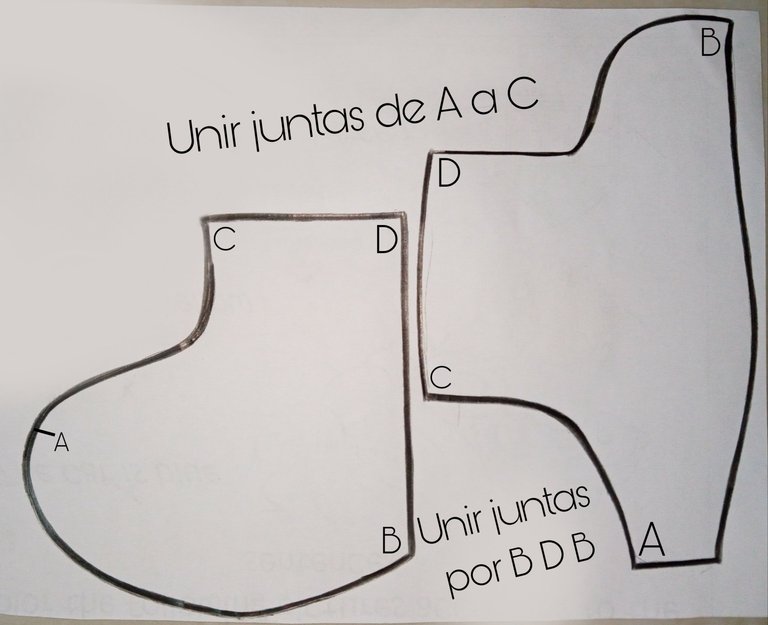 Unir juntas de A a C
B
D
C
D
C
A
B
Unir juntas
por B D B
A